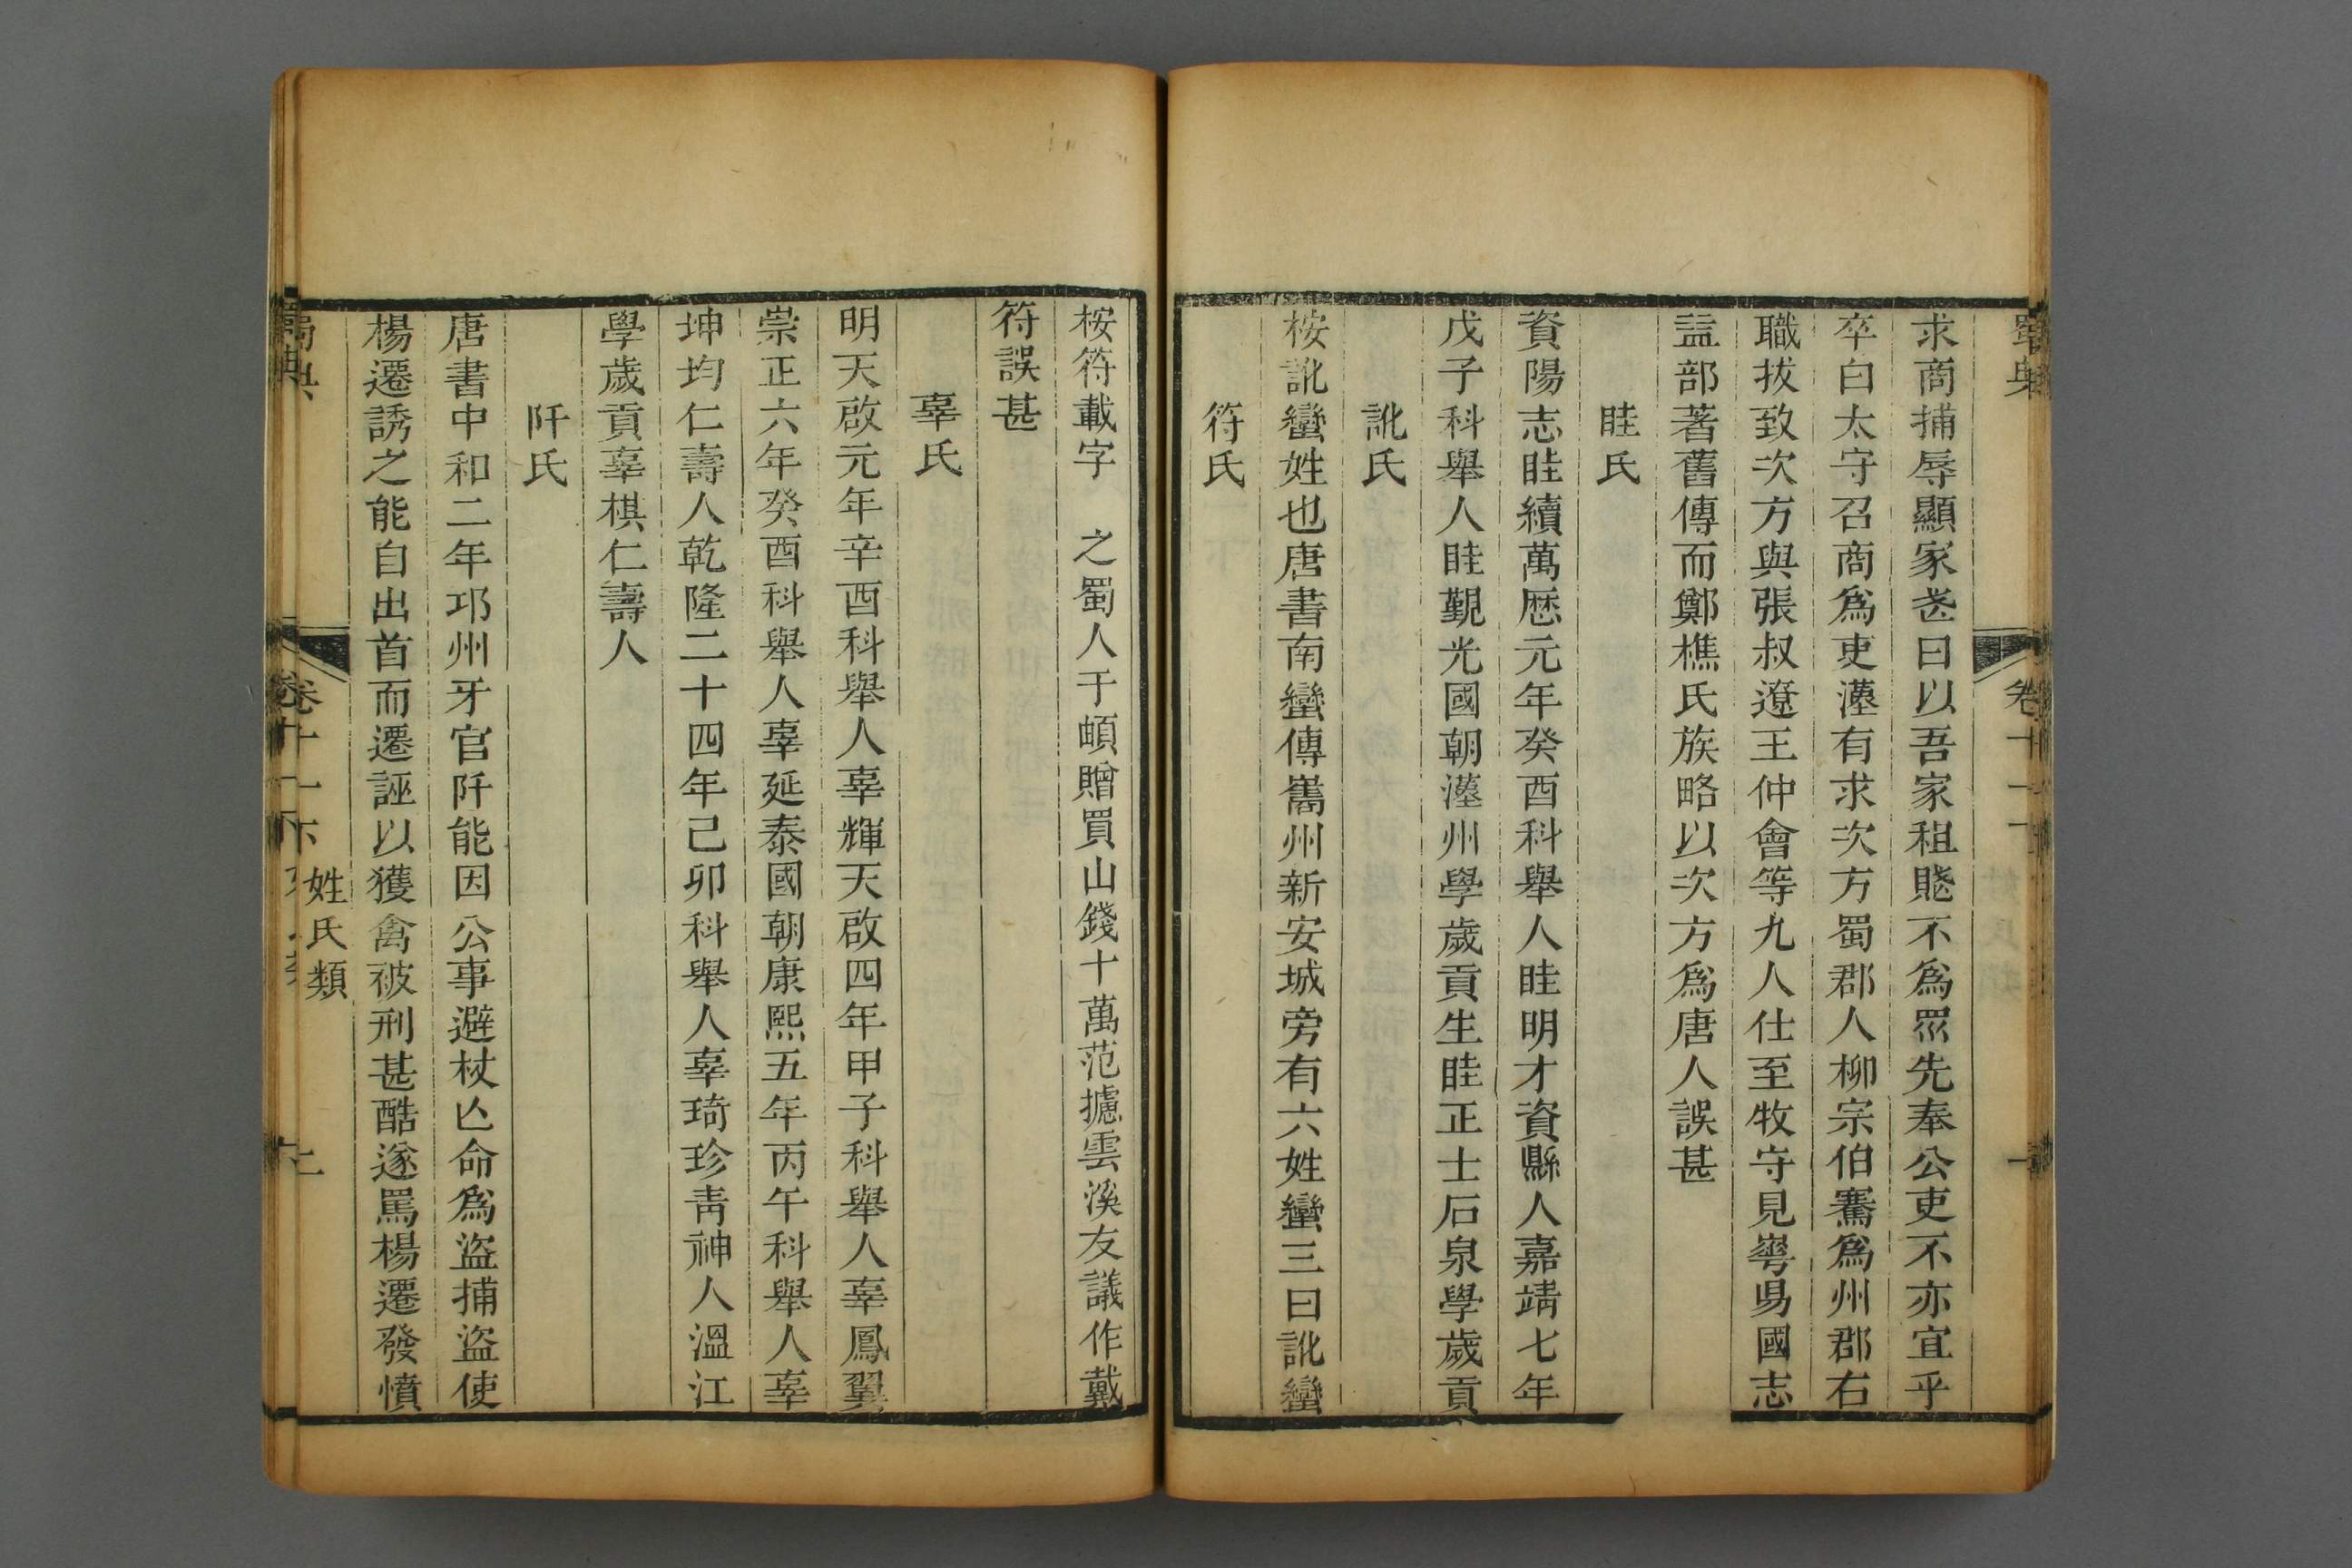 蜀典
卷十一下
求商捕辱顯家㦲曰以吾家租賤不爲眾先奉公吏不亦宜乎
卒白太守召商爲吏漢有求次方蜀郡人柳宗伯騫爲州郡右
職拔致次方與張叔遼王仲曾等九人仕至牧守見華昜國志
葢部著舊傳而鄭樵氏族略以次方爲唐人誤甚
眭氏
資陽志眭續萬厯元年癸酉科舉人眭明才資縣人嘉靖七年
戊子科舉人眭覲光國朝漢州學歲貢生眭正士石泉學歲貢
訿氏
桉訿蠻姓也唐書南蠻傳嶲州新安城旁有六姓蠻三曰訿蠻
符氏
桉符載字 之蜀人于頔贈買山錢十萬范攄雲溪友議作戴
符誤甚
辜氏
明天啟元年辛酉科舉人辜輝天啟四年甲子科舉人辜鳳翼
崇正六年癸酉科舉人辜延泰國朝康熙五年丙午科舉人辜
坤均仁壽人乾隆二十四年己卯科舉人辜琦珍靑神人溫江
學歲貢辜棋仁壽人
阡氏
唐書中和二年邛州牙官阡能因公事避杖亾命爲盜捕盜使
楊遷誘之能自出首而遷誣以獲禽被刑甚酷遂罵楊遷發憤
蜀典
卷十一下
姓氏類